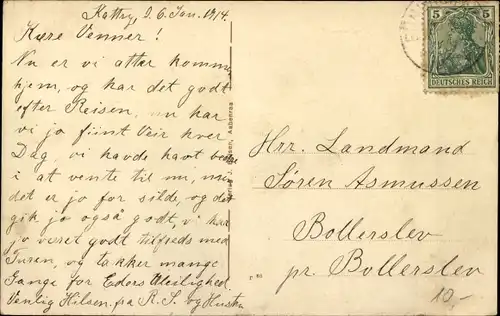 Kattry, d. 6. Jan. 1914.
Kære Venner!
Nu er vi atter kommen
hjem, og har det godt
efter Reisen, nu har
vi jo fiint Veir hver
Dag, vi havde havt bedre
i at vente til nu, men
det er jo for silde, og det
gik jo også godt, vi har
jo været godt tilfreds med
Turen, og takker mange
Gange for Eders Uleilighed.
Venlig Hilsen fra R. S. og Hustru
Aabenraa
5 5
DEUTSCHES REICH
Hrr. Landmand
Sören Asmussen
Bollerslev
pr. Bollerslev
10.-